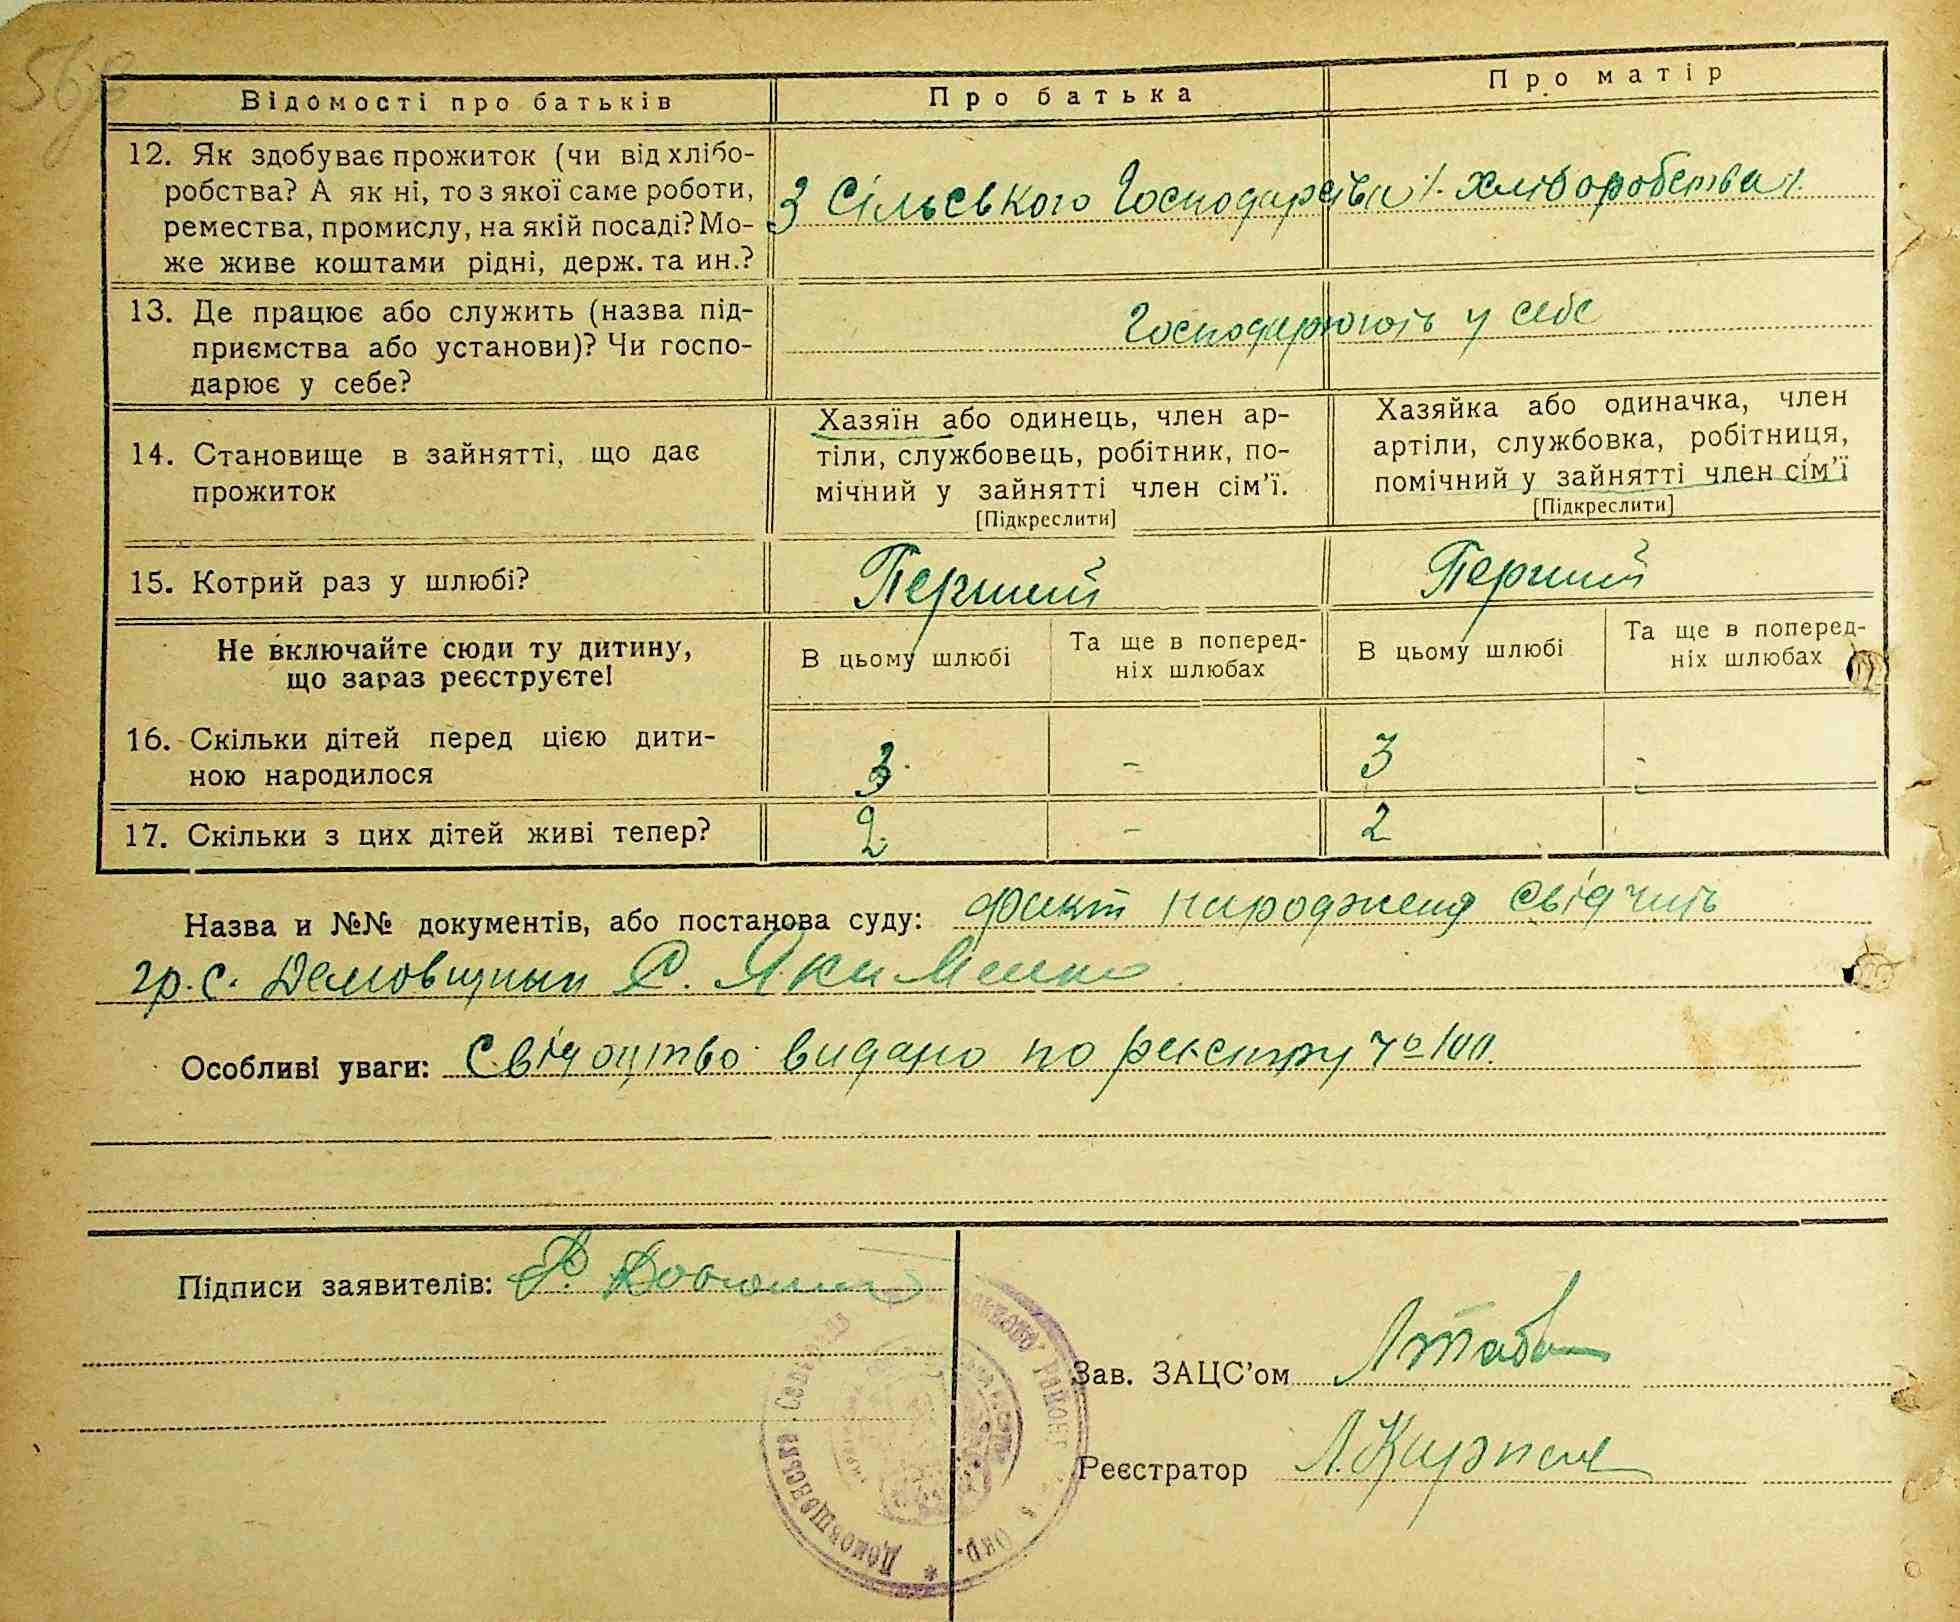 Відомості про батьків Про батька Про матір
12. Як здобуває прожиток (чи від хлібо-
робства? А як ні, то з якої саме роботи,
ремества, промислу, на якій посаді? Мо-
же живе коштами рідні, держ. та ин.?
З Сільського Господарства /. хліборобства /.
13. Де працює або служить (назва під-
приємства або установи)? Чи госпо-
дарює у себе?
Господарюють у себе
14. Становище в зайнятті, що дає
прожиток
Хазяїн або одинець, член ар-
тіли, службовець, робітник, по-
мічний у зайнятті член сім'ї.
[Підкреслити]
Хазяйка або одиначка, член
артіли, службовка, робітниця,
помічний у зайнятті член сім'ї
[Підкреслити]
15. Котрий раз у шлюбі? Перший Перший
Не включайте сюди ту дитину,
що зараз реєструєте!
В цьому шлюбі
Та ще в поперед-
ніх шлюбах
В цьому шлюбі
Та ще в поперед-
ніх шлюбах
16. Скільки дітей перед цією дити-
ною народилося
3 - 3 -
17. Скільки з цих дітей живі тепер? 2 - 2
Назва и №№ документів, або постанова суду: Факт народження свідчить
гр. с. Демовщини С. Якименко
Особливі уваги: Свідоцтво видано по реєстру №
Підписи заявителів:
Зав. ЗАЦС'ом
Реєстратор
Район
Окр.